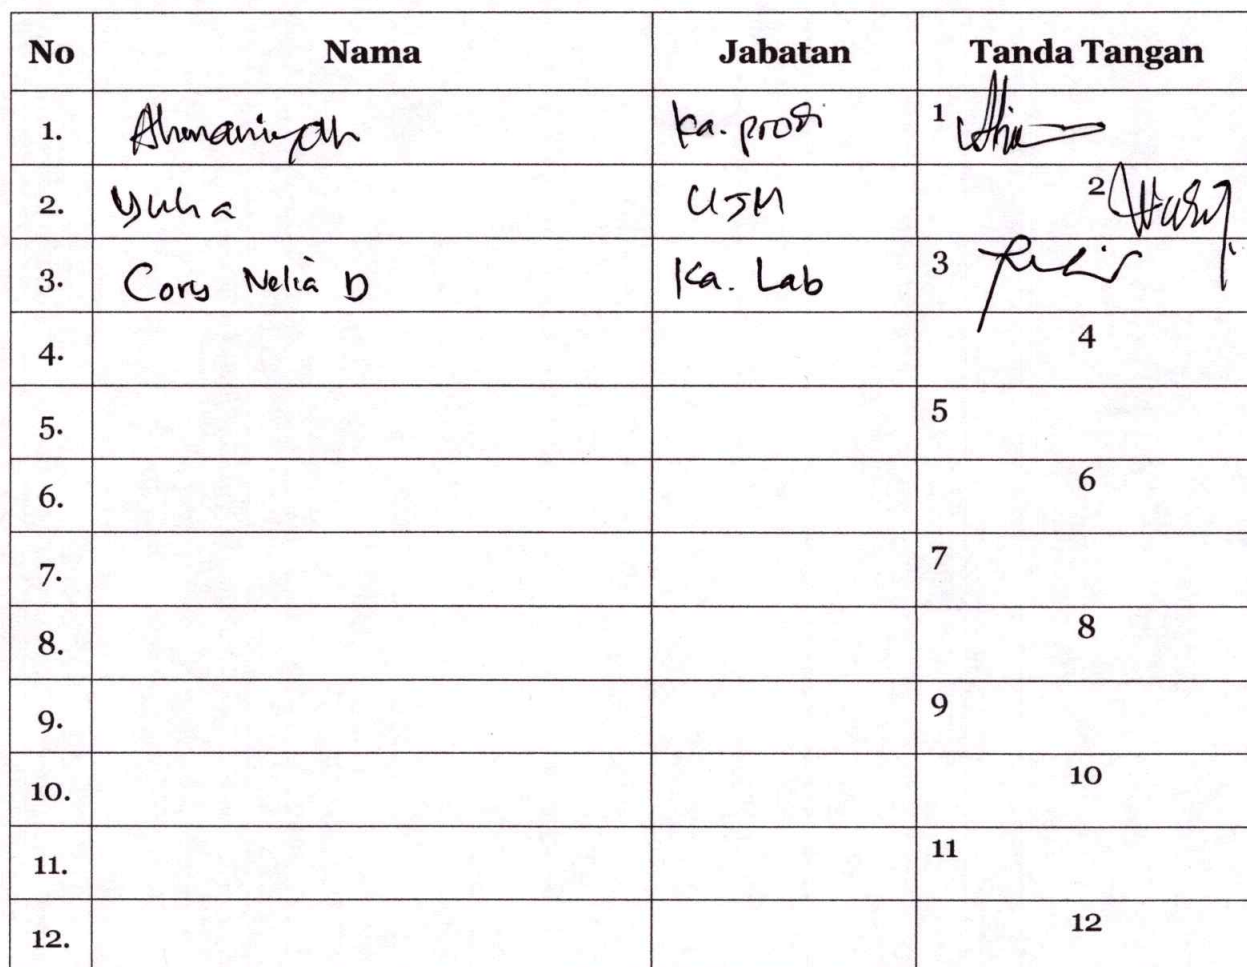 No Nama Jabatan Tanda Tangan
1. Ka. prodi 1
2. Yuha UJM 2
3. Cory Nelia D Ka. Lab 3
4. 4
5. 5
6. 6
7. 7
8. 8
9. 9
10. 10
11. 11
12. 12